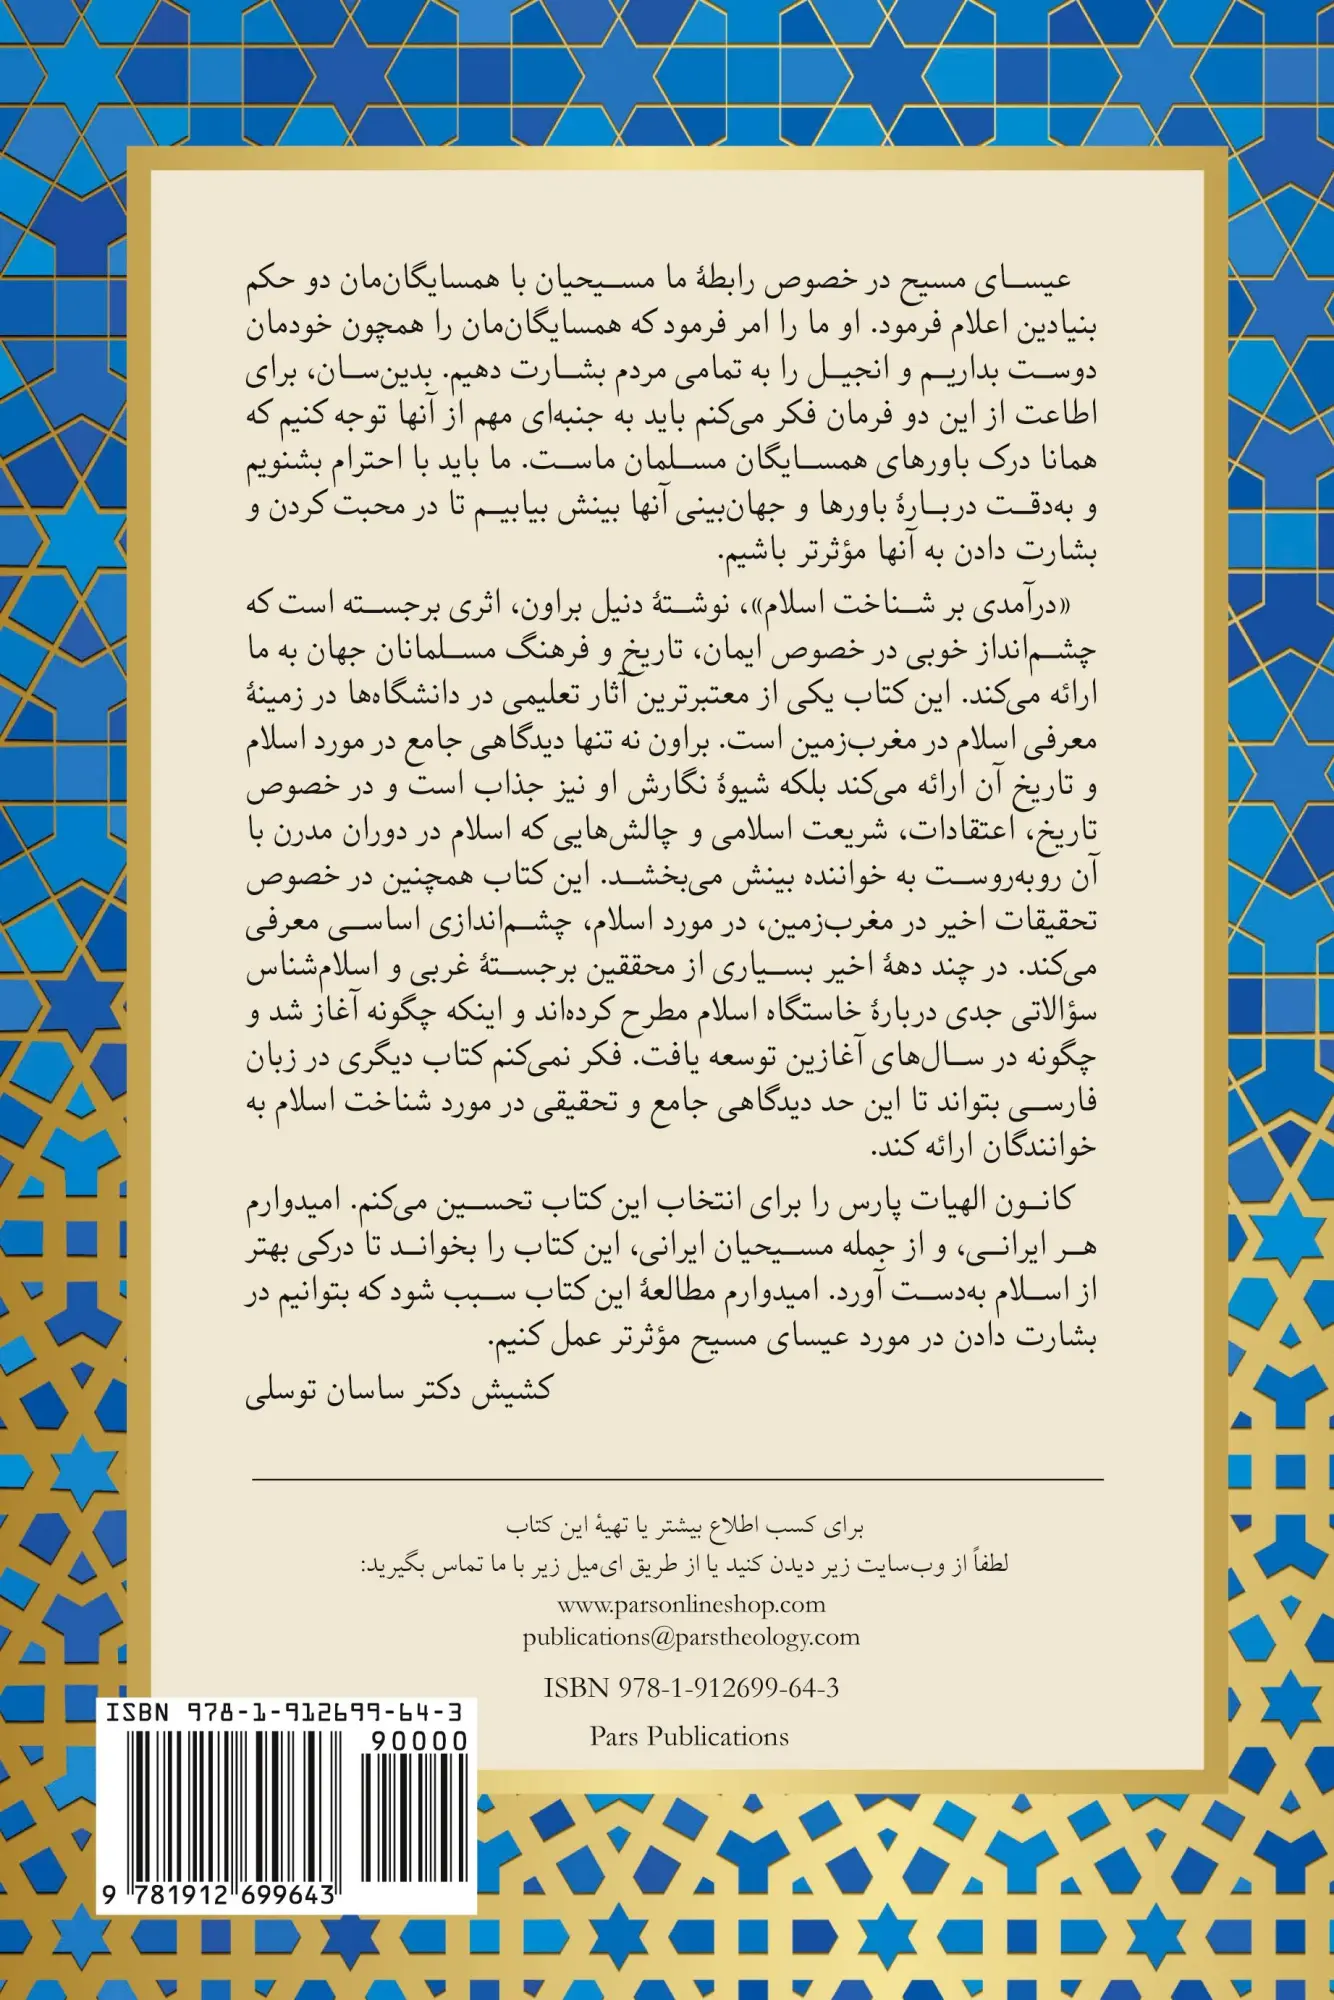 عیسای مسیح در خصوص رابطهٔ ما مسیحیان با همسایگان‌مان دو حکم
بنیادین اعلام فرمود. او ما را امر فرمود که همسایگان‌مان را همچون خودمان
دوست بداریم و انجیل را به تمامی مردم بشارت دهیم. بدین‌سان، برای
اطاعت از این دو فرمان فکر می‌کنم باید به جنبه‌ای مهم از آنها توجه کنیم که
همانا درک باورهای همسایگان مسلمان ماست. ما باید با احترام بشنویم
و به‌دقت دربارهٔ باورها و جهان‌بینی آنها بینش بیابیم تا در محبت کردن و
بشارت دادن به آنها مؤثرتر باشیم.
«درآمدی بر شناخت اسلام»، نوشتهٔ دنیل براون، اثری برجسته است که
چشم‌انداز خوبی در خصوص ایمان، تاریخ و فرهنگ مسلمانان جهان به ما
ارائه می‌کند. این کتاب یکی از معتبرترین آثار تعلیمی در دانشگاه‌ها در زمینهٔ
معرفی اسلام در مغرب‌زمین است. براون نه تنها دیدگاهی جامع در مورد اسلام
و تاریخ آن ارائه می‌کند بلکه شیوهٔ نگارش او نیز جذاب است و در خصوص
تاریخ، اعتقادات، شریعت اسلامی و چالش‌هایی که اسلام در دوران مدرن با
آن روبه‌روست به خواننده بینش می‌بخشد. این کتاب همچنین در خصوص
تحقیقات اخیر در مغرب‌زمین، در مورد اسلام، چشم‌اندازی اساسی معرفی
می‌کند. در چند دههٔ اخیر بسیاری از محققین برجستهٔ غربی و اسلام‌شناس
سؤالاتی جدی دربارهٔ خاستگاه اسلام مطرح کرده‌اند و اینکه چگونه آغاز شد و
چگونه در سال‌های آغازین توسعه یافت. فکر نمی‌کنم کتاب دیگری در زبان
فارسی بتواند تا این حد دیدگاهی جامع و تحقیقی در مورد شناخت اسلام به
خوانندگان ارائه کند.
کانون الهیات پارس را برای انتخاب این کتاب تحسین می‌کنم. امیدوارم
هر ایرانی، و از جمله مسیحیان ایرانی، این کتاب را بخواند تا درکی بهتر
از اسلام به‌دست آورد. امیدوارم مطالعهٔ این کتاب سبب شود که بتوانیم در
بشارت دادن در مورد عیسای مسیح مؤثرتر عمل کنیم.
کشیش دکتر ساسان توسلی
برای کسب اطلاع بیشتر یا تهیهٔ این کتاب
لطفاً از وب‌سایت زیر دیدن کنید یا از طریق ای‌میل زیر با ما تماس بگیرید:
www.parsonlineshop.com
publications@parstheology.com
ISBN 978-1-912699-64-3
Pars Publications
ISBN 978-1-912699-64-3
90000
9 781912 699643